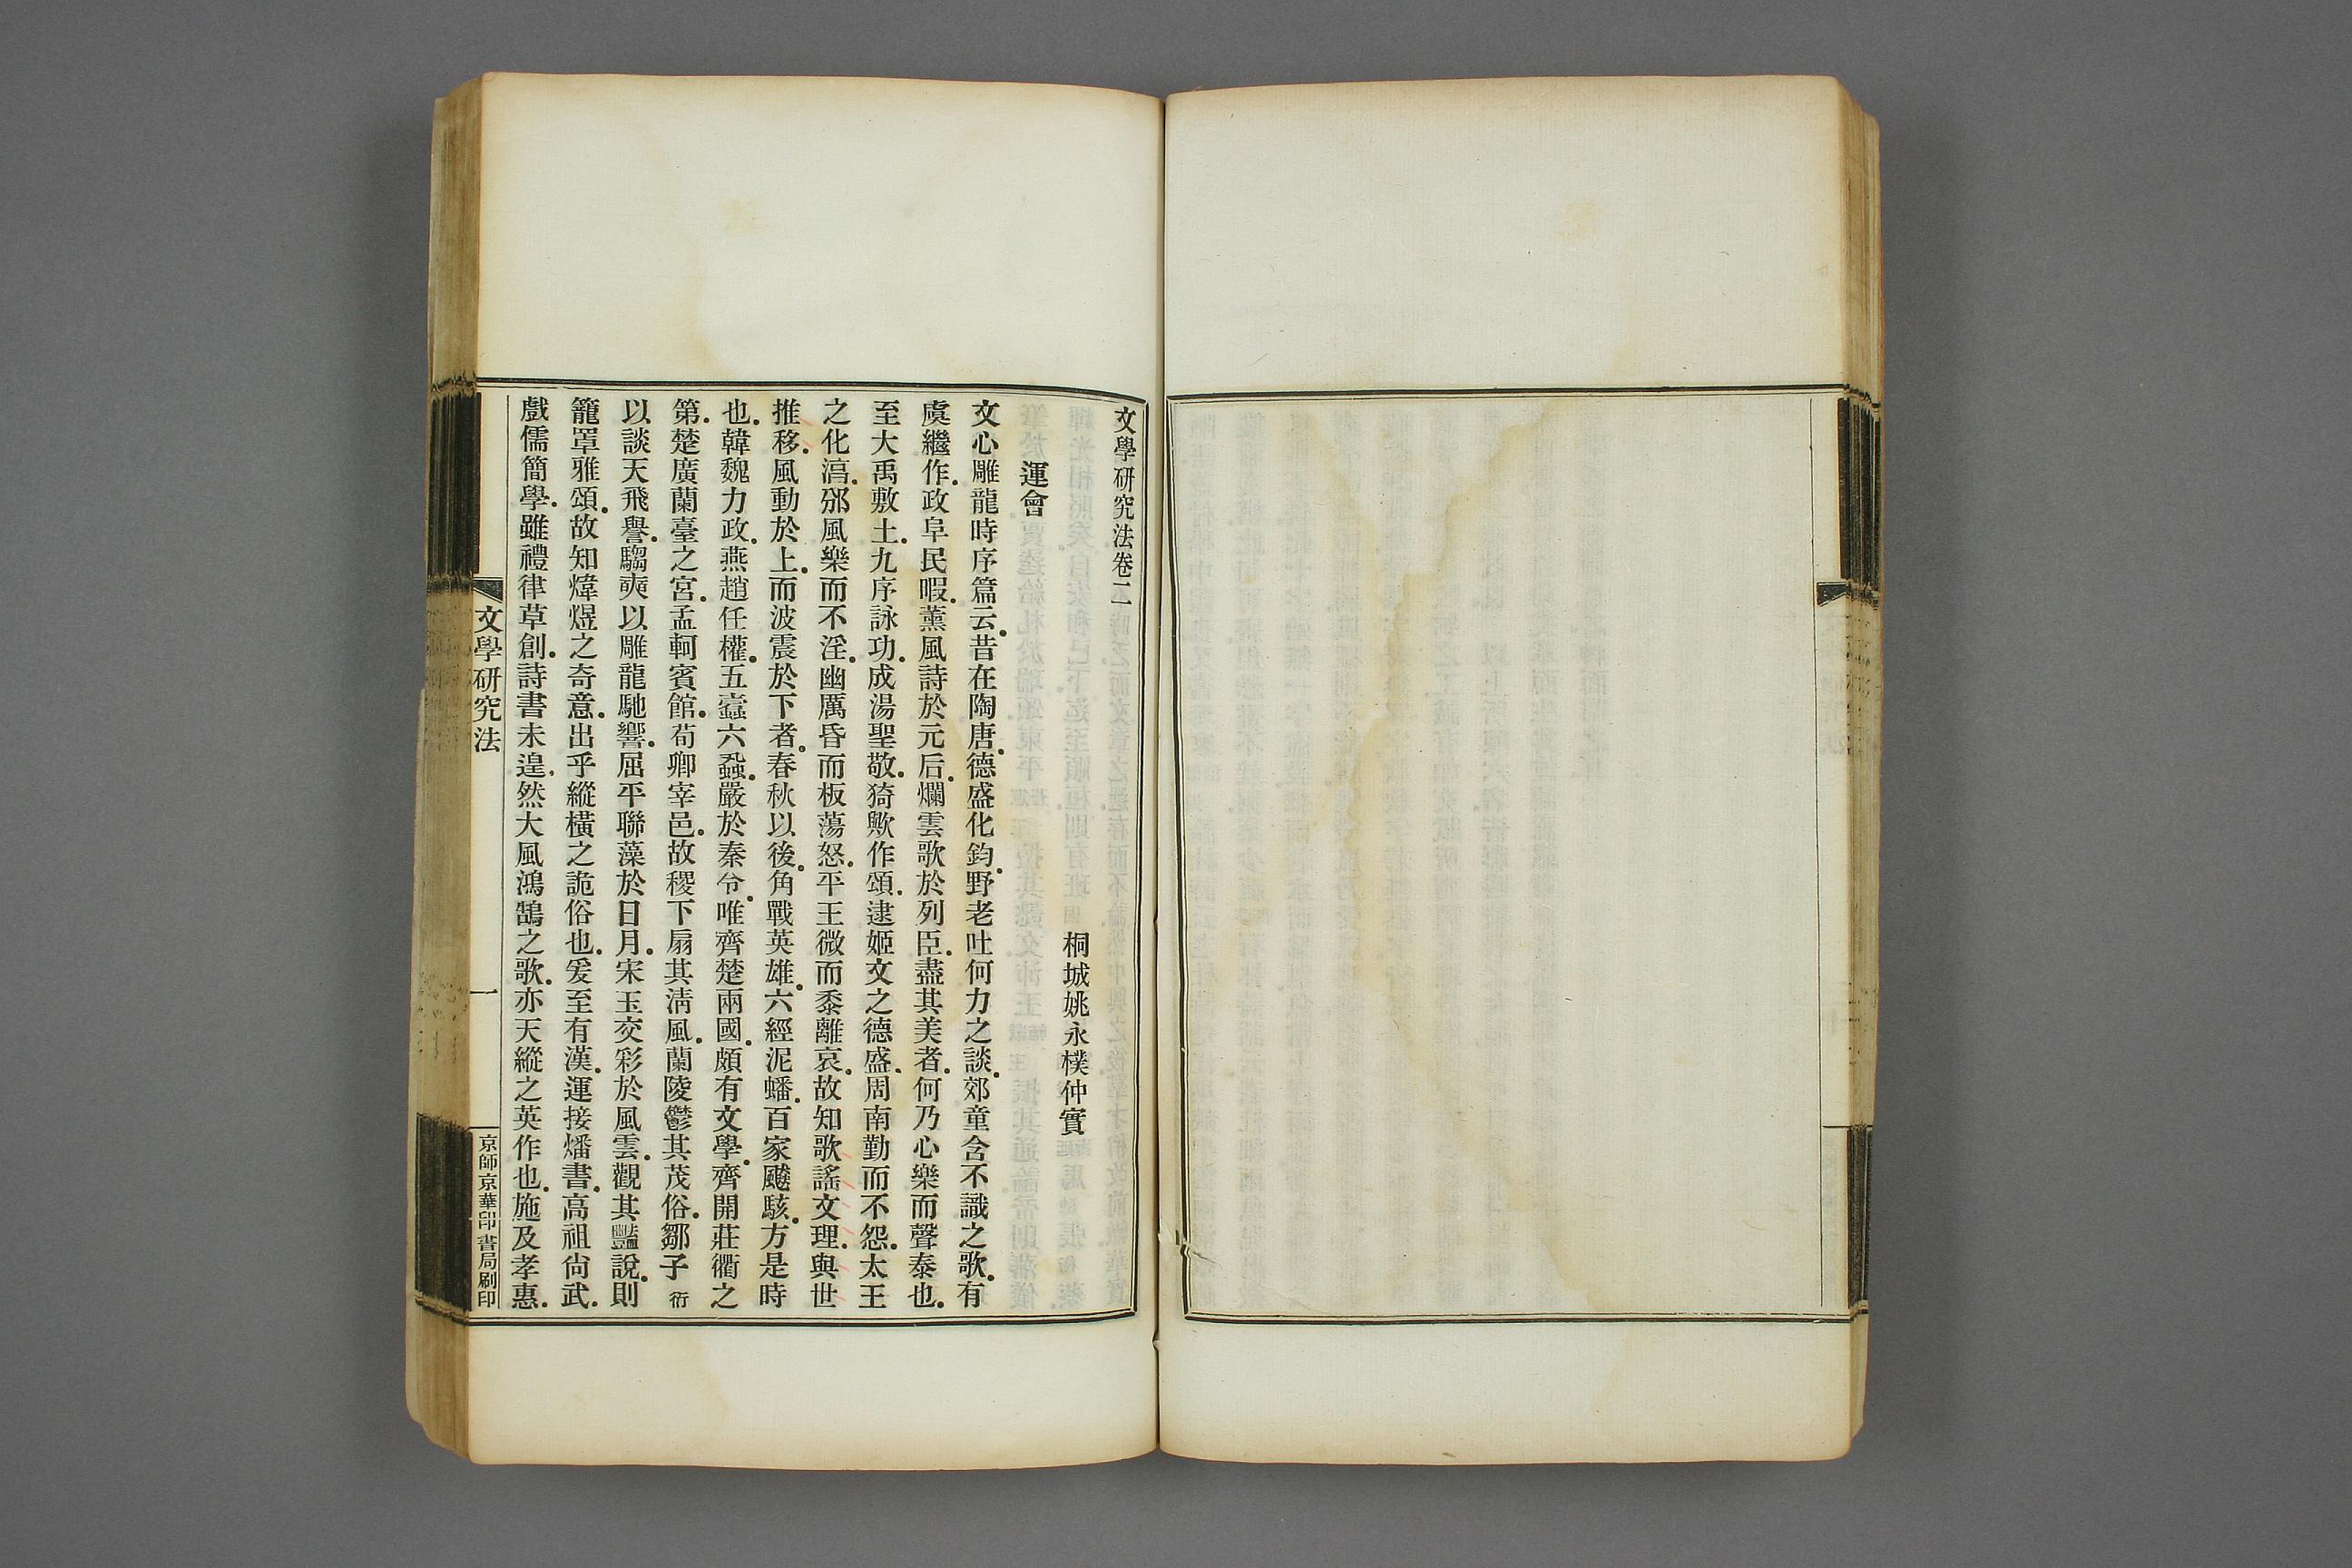 文學研究法卷二
桐城姚永樸仲實
運會
文心雕龍時序篇云。昔在陶唐。德盛化鈞。野老吐何力之談。郊童含不識之歌。有
虞繼作。政阜民暇。薰風詩於元后。爛雲歌於列臣。盡其美者。何乃心樂而聲泰也。
至大禹敷土。九序詠功。成湯聖敬。猗歟作頌。逮姬文之德盛。周南勤而不怨。太王
之化淳。邠風樂而不淫。幽厲昏而板蕩怒。平王微而黍離哀。故知歌謠文理。與世
推移。風動於上。而波震於下者。春秋以後。角戰英雄。六經泥蟠。百家飈駭。方是時
也。韓魏力政。燕趙任權。五蠹六蝨。嚴於秦令。唯齊楚兩國。頗有文學。齊開莊衢之
第。楚廣蘭臺之宮。孟軻賓館。荀卿宰邑。故稷下扇其淸風。蘭陵鬱其茂俗。鄒子衍
以談天飛譽。騶奭以雕龍馳響。屈平聯藻於日月。宋玉交彩於風雲。觀其豔說。則
籠罩雅頌。故知煒煜之奇意。出乎縱橫之詭俗也。爰至有漢。運接燔書。高祖尙武。
戲儒簡學。雖禮律草創。詩書未遑。然大風鴻鵠之歌。亦天縱之英作也。施及孝惠。
文學研究法
一
京師京華印書局刷印